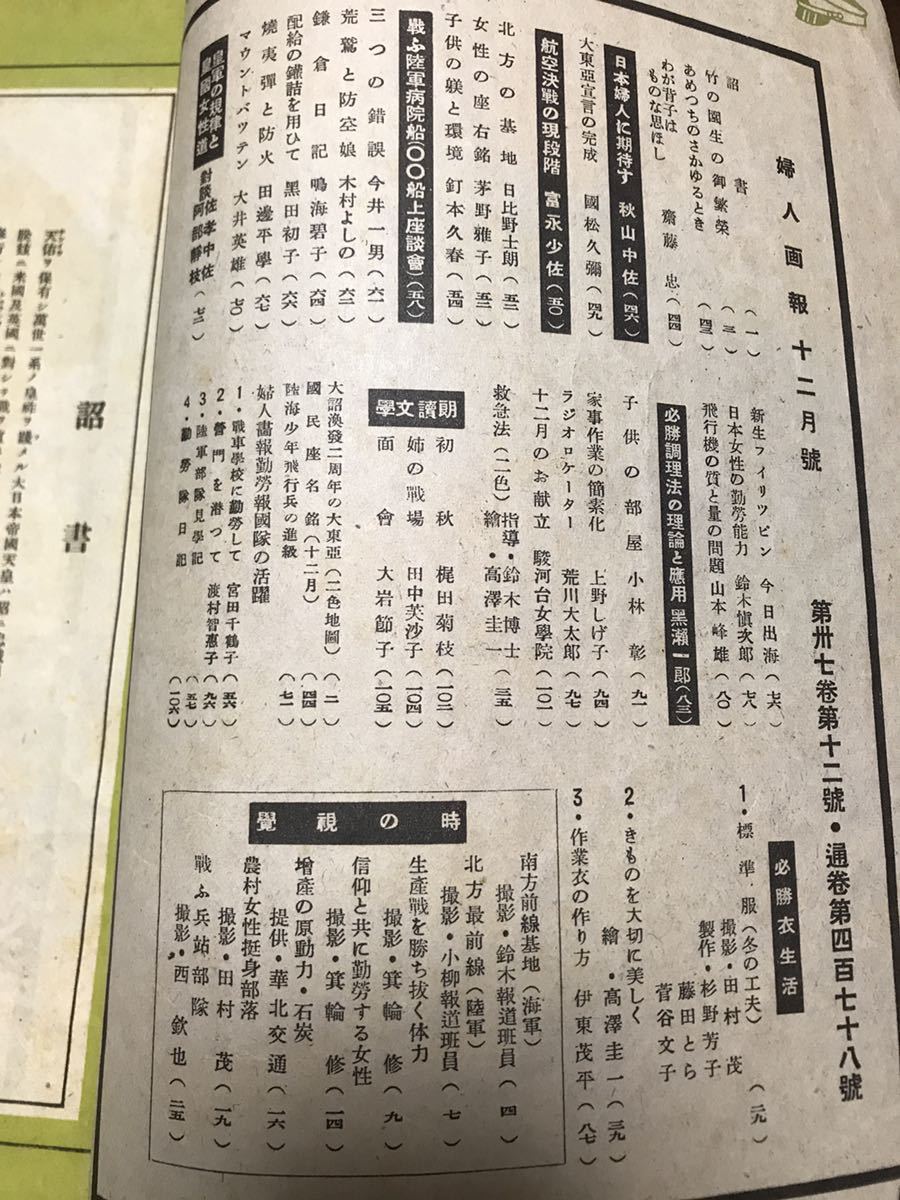 婦人画報十二月號
第卅七卷第十二號・通卷第四百七十八號
詔書(一)
竹の園生の御繁榮(三)
あめつちのさかゆるとき(四三)
わが背子は
ものな思ほし 齋藤忠(四四)
日本婦人に期待す 秋山中佐(四六)
大東亞宣言の完成 國松久彌(四九)
航空決戰の現段階 富永少佐(五〇)
北方の基地 日比野士朗(五二)
女性の座右銘 茅野雅子(五三)
子供の躾と環境 釘本久春(五四)
戰ふ陸軍病院船(〇〇船上座談會)(五八)
三つの錯誤 今井一男(六一)
荒鷲と防空娘 木村よしの(六二)
鎌倉日記 鳴海碧子(六四)
配給の鑵詰を用ひて 黑田初子(六六)
燒夷彈と防火 田邊平學(六七)
マウントバッテン 大井英雄(七〇)
皇軍の規律と
皇國女性道 對談 佐孝中佐
阿部靜枝(七二)
新生フィリッピン 今日出海(七六)
日本女性の勤勞能力 鈴木愼次郎(七八)
飛行機の質と量の問題 山本峰雄(八〇)
必勝調理法の理論と應用 黑瀨一郎(八三)
子供の部屋 小林彰(九一)
家事作業の簡素化 上野しげ子(九四)
ラジオロケーター 荒川大太郎(九七)
十二月のお献立 駿河台女學院(一〇一)
救急法(二色) 指導・鈴木博士
繪・高澤圭一(三五)
朗讀文學
初秋 梶田菊枝(一〇二)
姉の戰場 田中芙沙子(一〇四)
面會 大岩節子(一〇五)
大詔渙發二周年の大東亞(二色地圖)(二)
國民座名銘(十二月)(四四)
陸海少年飛行兵の進級(七一)
婦人畫報勤勞報國隊の活躍
1・戰車學校に勤勞して 宮田千鶴子(五六)
2・營門を潜つて 渡村智惠子(九六)
3・陸軍部隊見學記(五七)
4 勤勞隊日記(一〇六)
必勝衣生活
1・標準服(冬の工夫)(二九)
撮影・田村茂
製作・杉野芳子
藤田とら
菅谷文子
2・きものを大切に美しく
繪・高澤圭一(三九)
3・作業衣の作り方 伊東茂平(八七)
時の視覺
南方前線基地(海軍)
撮影・鈴木報道班員(四)
北方最前線(陸軍)
撮影・小柳報道班員(七)
生產戰を勝ち抜く体力
撮影・箕輪修(九)
信仰と共に勤勞する女性
撮影・箕輪修(一四)
增產の原動力・石炭
提供・華北交通(一六)
農村女性挺身部落
撮影・田村茂(一九)
戰ふ兵站部隊
撮影・西欽也(二五)
詔書
天佑ヲ保有シ萬世一系ノ皇祚ヲ踐メル大日本帝國天皇ハ昭